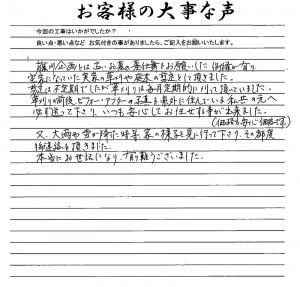 お客様の大事な声
今回の工事はいかがでしたか？
良い点・悪い点など お気付きの事がありましたら、ご記入をお願いいたします。
藤川企画とは古いお墓の墓仕舞をお願いした 有り、
空家になっていた実家の草刈りや庭木の剪定をして頂きました。
剪定は不定期でしたが草刈りは毎月定期的に行って頂いていました。
草刈りの前後、ビフォー・アフターの写真を県外に住んでいる私共の元へ
必ず送って下さり、いつも安心してお任せする事が出来ました。
(価格も安心価格です)
又、大雨や雪が降った時等 家の様子を見に行って下さり、その都度
御連絡を頂きました。
本当にお世話になり、有難うございました。